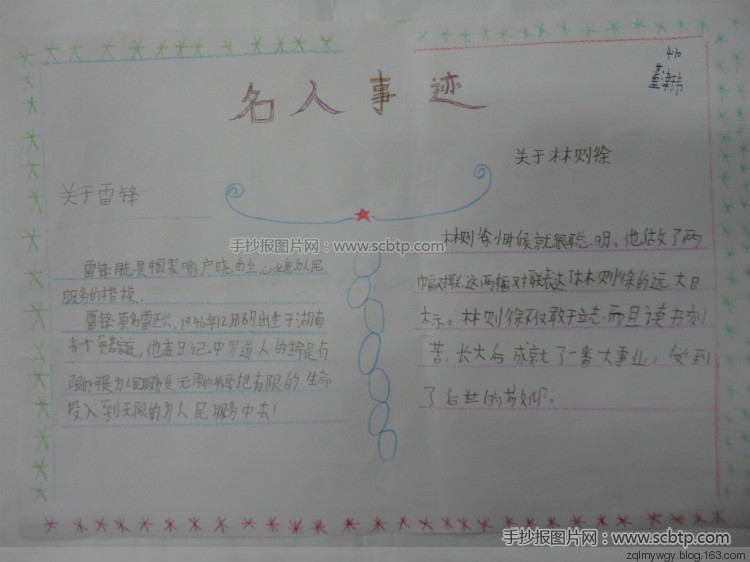 名人事迹
关于雷锋
雷锋是
服务的楷模。
雷锋原名雷正兴,1940年12月18日出生于湖南
他在日记中写道人的生命是有
限的 为人民服务是无限的 要把有限的生命
投入到无限的为人民服务中去!
关于林则徐
林则徐小时候就很聪明。他做了两
幅对联这两幅对联表达了林则徐的远大目
标。林则徐不仅敢于立志而且读书刻
苦,长大后成就了一番大事业,受到
了后世的
手抄报图片网·www.scbtp.com
手抄报图片网·www.scbtp.com
zqlmywgy.blog.163.com